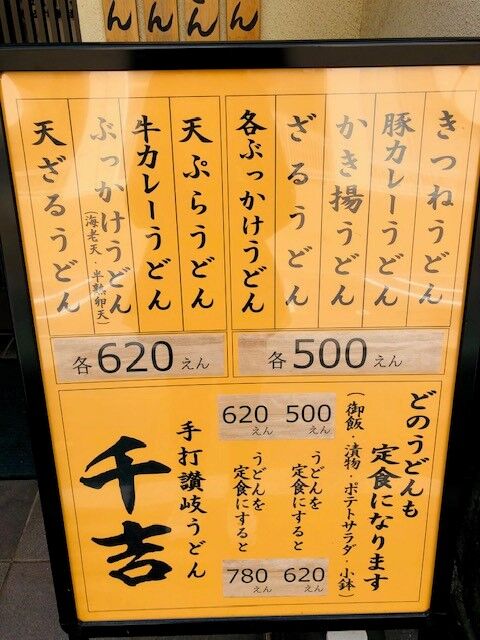 きつねうどん
豚カレーうどん
かき揚うどん
ざるうどん
各ぶっかけうどん
各500えん
天ぷらうどん
牛カレーうどん
ぶっかけうどん
(海老天・半熟卵天)
天ざるうどん
各620えん
どのうどんも
定食になります
(御飯・漬物・ポテトサラダ・小鉢)
500えん
うどんを
定食にすると
620えん
620えん
うどんを
定食にすると
780えん
手打讃岐うどん
千吉